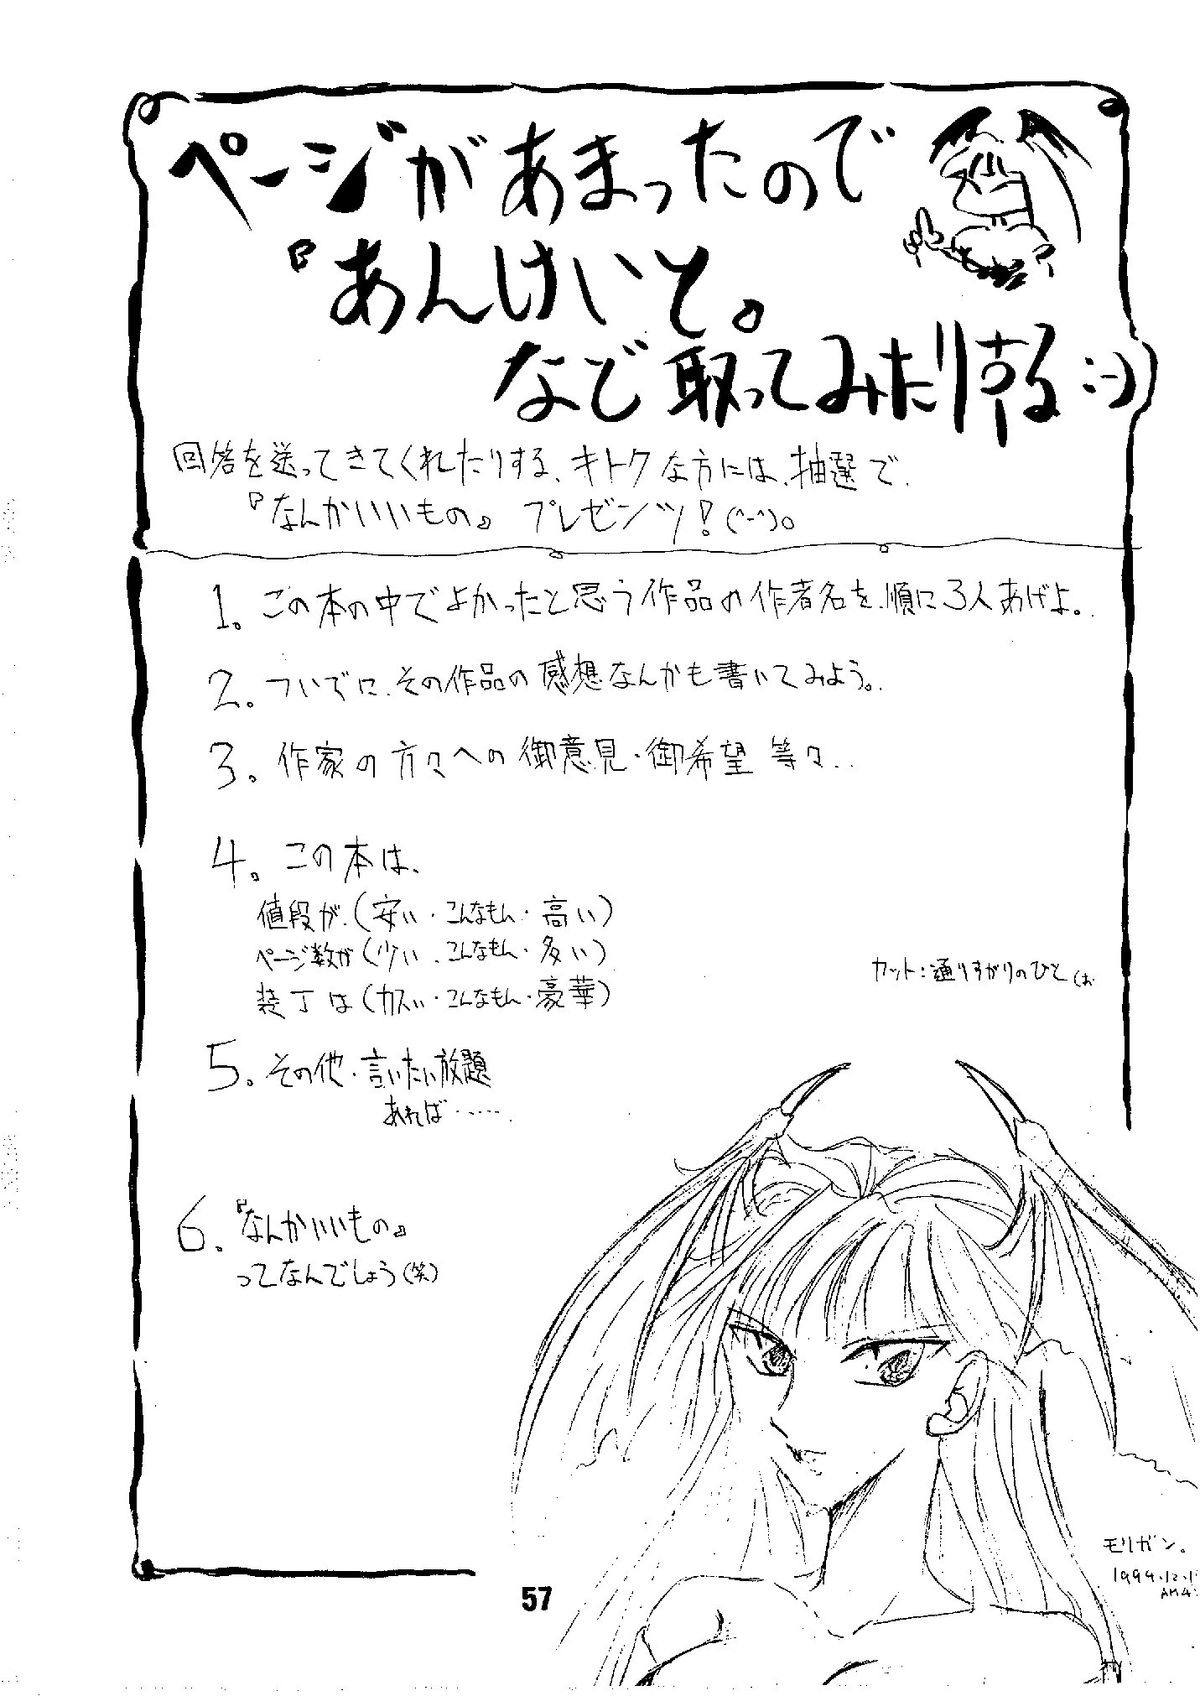 ページがあまったので
『あんけいと。
など取ってみたりする :-)
回答を送ってきてくれたりする、キトクな方には、抽選で、
『なんかいいもの』 プレゼンツ！(^-^)。
1。この本の中でよかったと思う作品の作者名を、順に3人あげよ。
2。ついでに、その作品の感想なんかも書いてみよう。
3。作家の方々への御意見・御希望 等々..
4。この本は、
値段が、(安い・こんなもん・高い)
ページ数が(少い、こんなもん・多い)
装丁は(カスい・こんなもん・豪華)
カット：通りすがりのひと(お
5。その他・言いたい放題
あれば……
6。『なんかいいもの』
ってなんでしょう(笑)
モリガン。
1994.12.1
AM4:
57